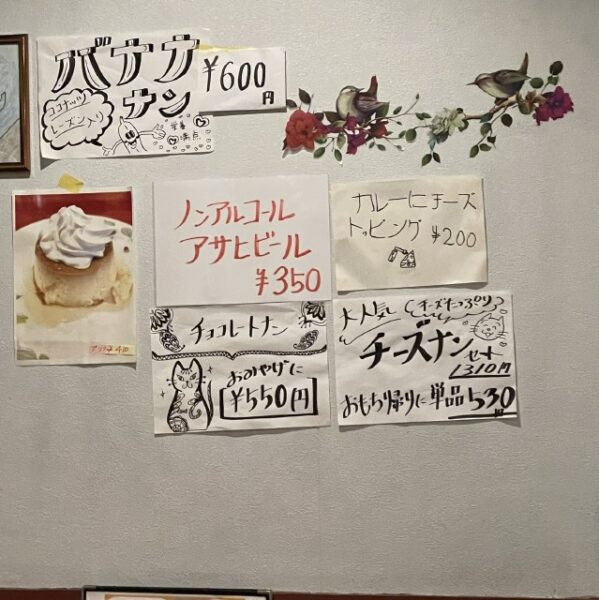 バナナ
ナン
ココナッツ
レーズン入り
栄養
満点
¥600
円
ノンアルコール
アサヒビール
¥350
カレーにチーズ
トッピング ¥200
チョコレートナン
おみやげに
¥550円
大人気 チーズたっぷり
チーズナンセット
1310円
おもち帰りに単品530円